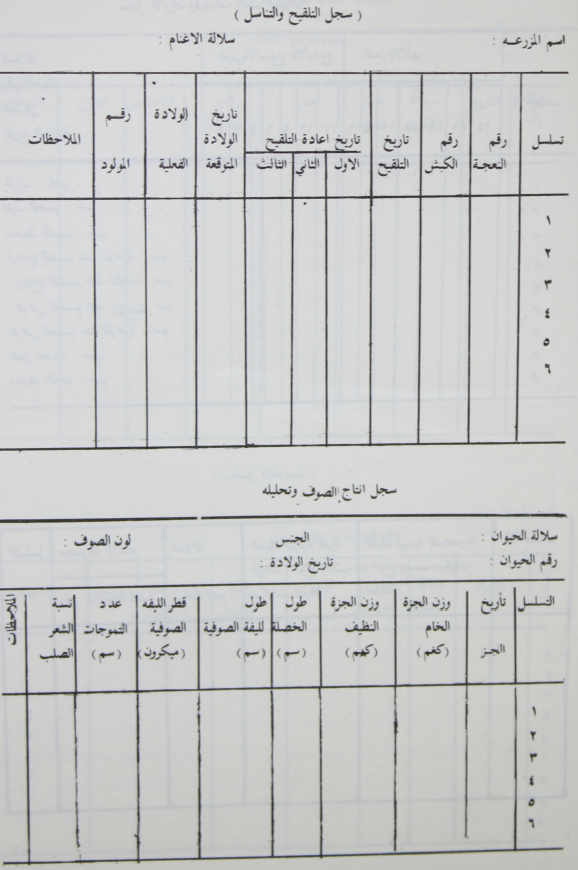 ( سجل التلقيح والتناسل )
اسم المزرعه : سلالة الاغنام :
تسلسل رقم النعجة رقم الكبش تاريخ التلقيح تاريخ اعادة التلقيح الاول الثاني الثالث تاريخ الولادة المتوقعة الولادة الفعلية رقم المولود الملاحظات
١
٢
٣
٤
٥
٦
سجل انتاج الصوف وتحليله
سلالة الحيوان : الجنس لون الصوف :
رقم الحيوان : تاريخ الولادة :
التسلسل تأريخ الجز وزن الجزة الخام (كغم) وزن الجزة النظيف (كهم) طول الخصلة (سم) طول لليفة الصوفية (سم) قطر الليفه الصوفية (ميكرون) عدد التموجات (سم) نسبة الشعر الصلب الملاحظات
١
٢
٣
٤
٥
٦